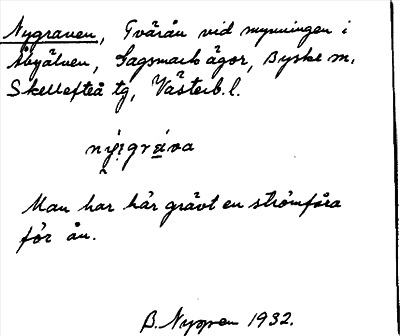 Nygraven, Tvärån vid mynningen i
Åbyälven, Gagsmark ägor, Byske sn,
Skellefteå tg, Västerb. l.
Man har här grävt en strömfåra
för ån.
1932.